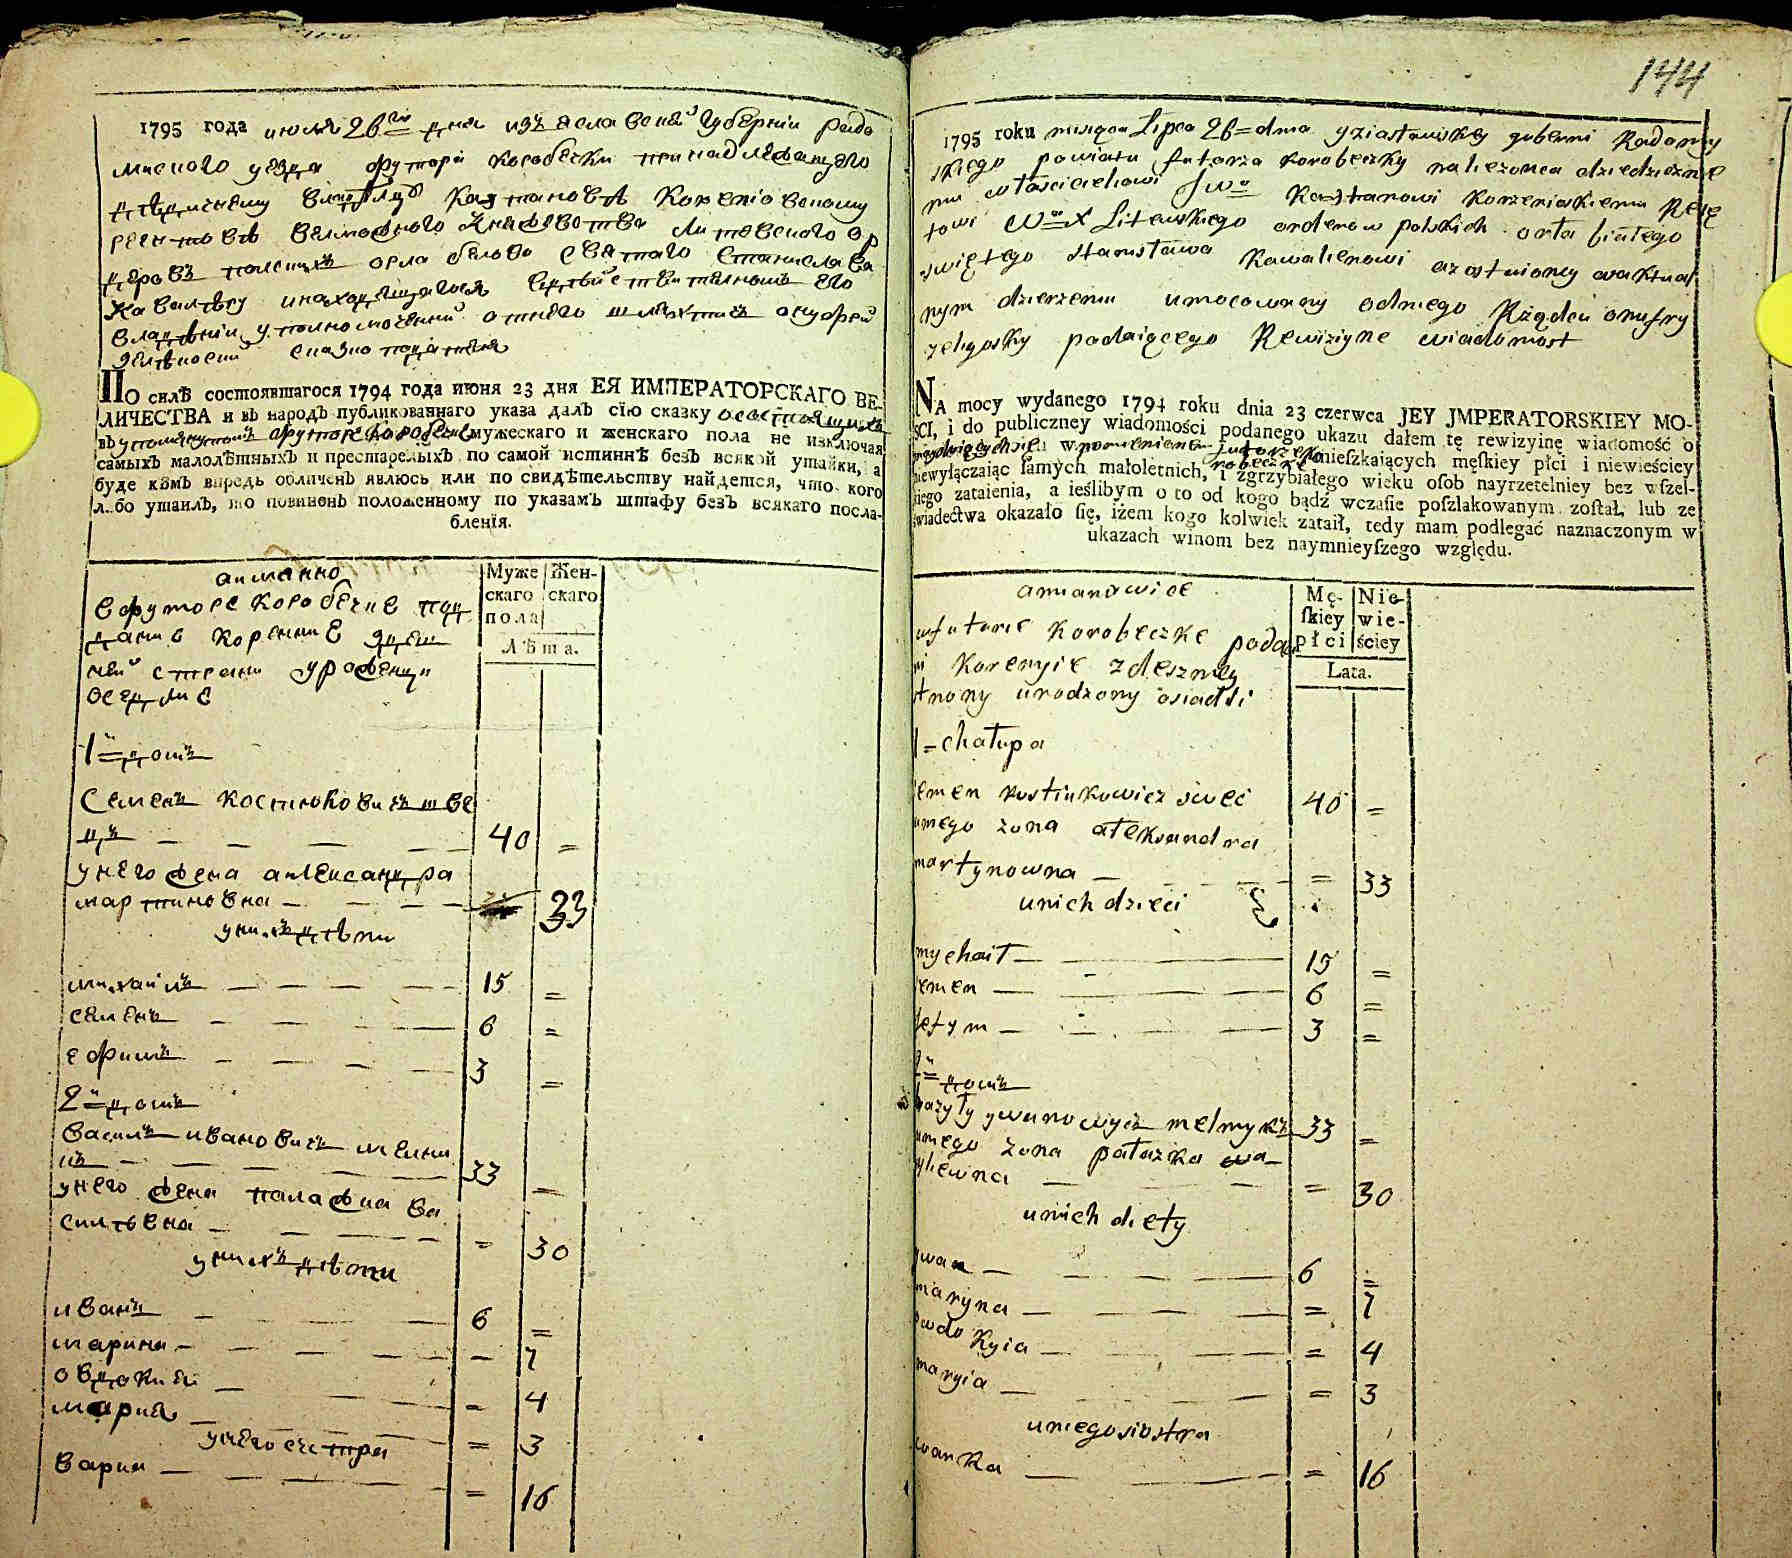 1795 года июля 26го дня изъяславской губернии радо
миского уезда футора коробочки принадлежащего
дедичному Каэтановѣ Корженіовскому
реентовѣ великого Князевства Литовского ор
деровъ полскихъ орла белого святаго Станислава
Кавалѣру инаходящагося его
владѣнии уполномоченный отнего шляхтичъ онуфрей
сказко подателя
По силѣ состоявшагося 1794 года июня 23 дня ЕЯ ИМПЕРАТОРСКАГО ВЕ-
ЛИЧЕСТВА и въ народъ публикованнаго указа далъ сїю сказку осостоящихъ
въ упомянутомъ футоре Коробочке мужескаго и женскаго пола не изключая
самыхъ малолѣтныхъ и престарелыхъ по самой истиннѣ безъ всякой утайки, а
буде кѣмъ впредь обличенъ явлюсь или по свидѣтельству найдется, что кого
либо утаилъ, то повиненъ положенному по указамъ штрафу безъ всякаго посла-
бленїя.
аименно
Муже
скаго
пола
Жен-
скаго
Лѣта.
в футоре коробочке под
дание коренние здеш
ней страни уроженци
оседлие
1й домъ
Семенъ Костюковичъ шве
цъ — — — — 40 =
унего жена александра
мартиновна — — — — 33
унихъ дѣти
михайлъ — — — — 15 =
семенъ — — — — 6 =
ефимъ — — — — 3 =
2й домъ
Василъ ивановичъ мелни
къ — — — — 33 =
унего жена палажка ва
силѣвна — — — — = 30
унихъ дѣти
иванъ — — — — 6 =
марина — — — — = 7
овдокия — — — — = 4
мария — — — — = 3
унего систра
варка — — — — = 16
144
1795 roku miesiąca Lipca 26 = dnia yziasławskiey gubernii Radomy
skiego powiatu futorza korobeczky należącea dziedziczne
mu włascicielowi Jwo Kaietanowi Korzeniowskiemu Reię
towi W X Litewskiego orderow polskich orła białego
swiętego stanisława kawalierowi
nym dzierzeniu umocowany odniego Rządca onufry
zeligosky podaiącego Rewizyine wiadomost
NA mocy wydanego 1794 roku dnia 23 czerwca JEY JMPERATORSKIEY MO-
SCI, i do publiczney wiadomości podanego ukazu dałem tę rewizyinę wiadomość o
znayduiących się w pomienionem futorze korobeczke mieſzkaiących męſkiey płci i niewieściey
niewyłączaiąc ſamych małoletnich, i zgrzybiałego wieku oſob nayrzetelniey bez wſzel-
kiego zataienia, a ieślibym o to od kogo bądź wczaſie poſzlakowanym zoſtał, lub ze
świadectwa okazało ſię, iżem kogo kolwiek zataił, tedy mam podlegać naznaczonym w
ukazach winom bez naymnieyſzego względu.
amianowice
Mę-
ſkiey
płci
Nie-
wie-
ściey
Lata.
wfutorie korobeczke podda
ni korenyie zdeszniey
stnony urodzony osiadłi
1 = chałupa
semen kostiukowicz swec 40 =
unego żona ałeksandra
martynowna — — — = 33
unich dzieci
mychaił — — 15 =
semen — — 6 =
jefym — — 3 =
2й домъ
wazyły ywanowycz melnykъ 33 =
unego żona pałażka wa
sylewna — — — = 30
unich diety
ywan — — — 6 =
maryna — — — = 7
owdokyia — — — = 4
maryia — — — = 3
uniego siostra
warka — — — = 16